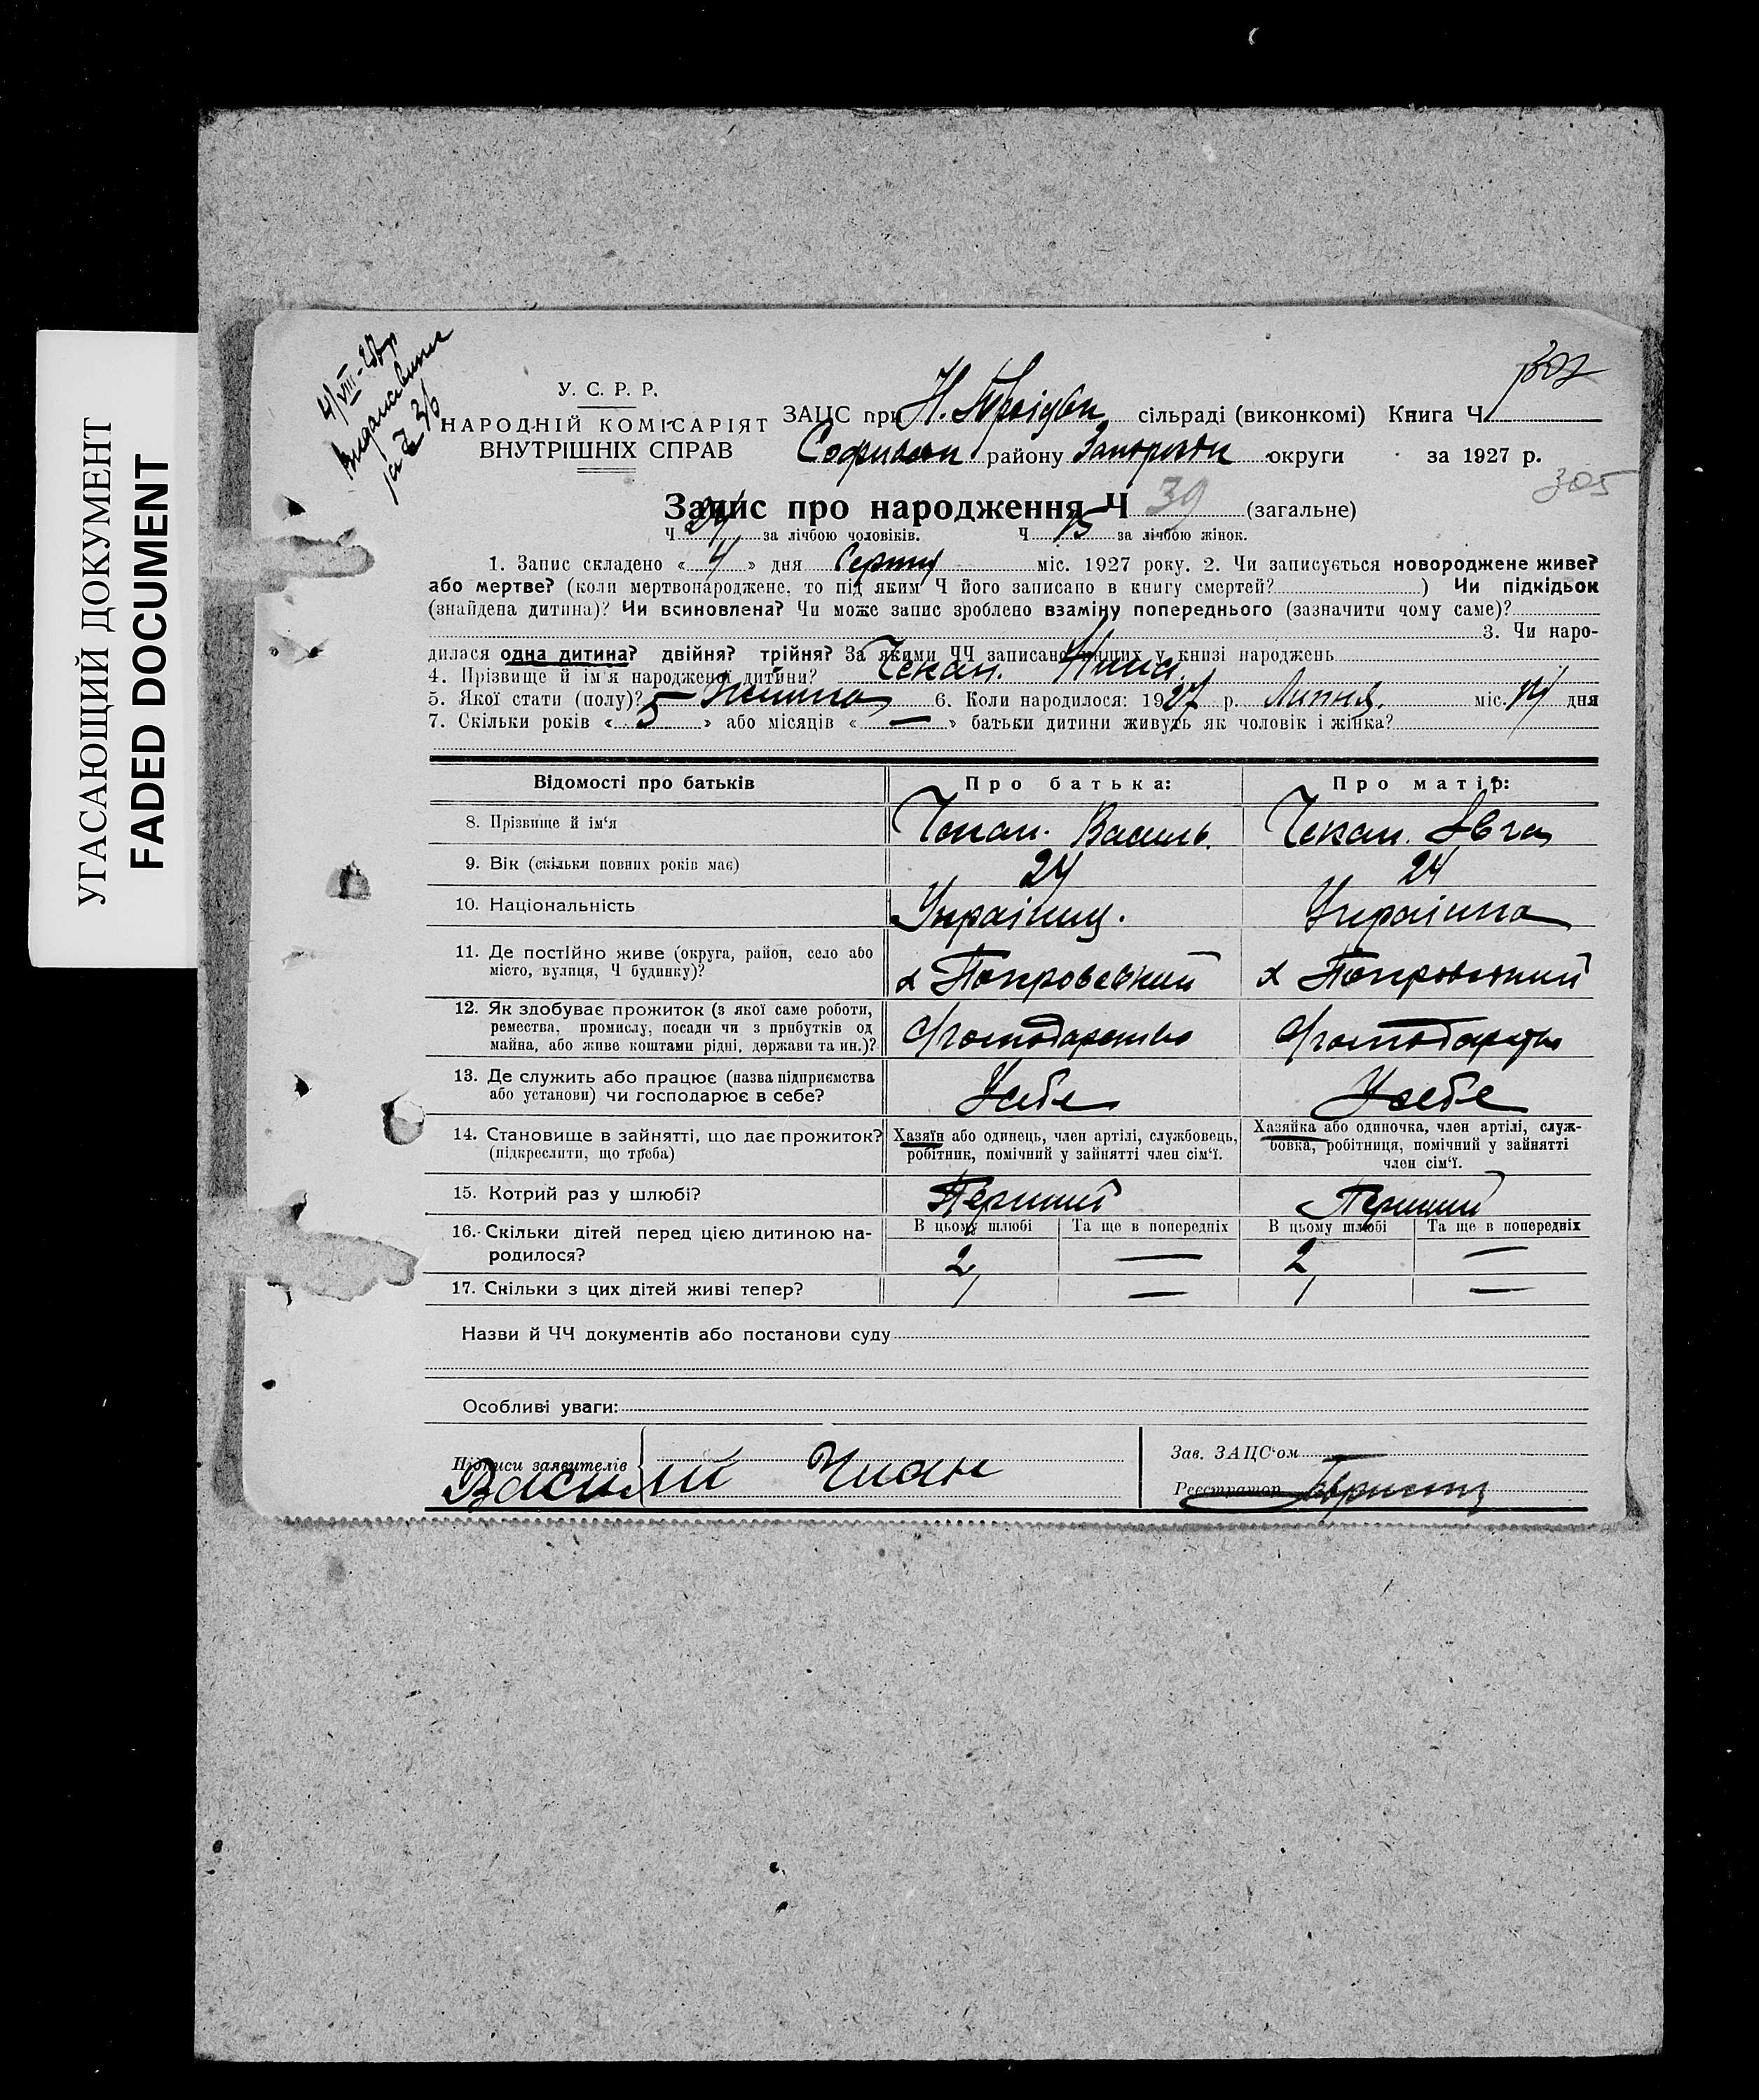 УГАСАЮЩИЙ ДОКУМЕНТ
FADED DOCUMENT
4/VIII-27р
за № 36
302
У. С. Р. Р.
НАРОДНІЙ КОМІСАРІЯТ
ВНУТРІШНІХ СПРАВ
ЗАЦС при Н. сільраді (виконкомі) Книга Ч
району округи за 1927 р.
305
Запис про народження Ч 39 (загальне)
Ч 24 за лічбою чоловіків. Ч 15 за лічбою жінок.
1. Запис складено « 4 » дня Серпня міс. 1927 року. 2. Чи записується новороджене живе?
або мертве? (коли мертвонароджене, то під яким Ч його записано в книгу смертей? ) Чи підкідьок
(знайдена дитина)? Чи всиновлена? Чи може запис зроблено взаміну попереднього (зазначити чому саме)?
3. Чи наро-
дилася одна дитина? двійня? трійня? За якими ЧЧ записано инших у книзі народжень
4. Прізвище й ім'я народженої дитини? Чекан.
5. Якої стати (полу)? Жіноча 6. Коли народилося: 1927 р. Липня. міс. 14 дня
7. Скільки років « 5 » або місяців « — » батьки дитини живуть як чоловік і жінка?
Відомості про батьків Про батька: Про матір:
8. Прізвище й ім'я Чекан. Василь. Чекан. Явга
9. Вік (скільки повних років має) 24 24
10. Національність Українец. Українка
11. Де постійно живе (округа, район, село або
місто, вулиця, Ч будинку)? х Покровський х Покровський
12. Як здобуває прожиток (з якої саме роботи,
ремества, промислу, посади чи з прибутків од
майна, або живе коштами рідні, держави та ин.)? Господарство Господарство
13. Де служить або працює (назва підприємства
або установи) чи господарює в себе? У себе У себе
14. Становище в зайнятті, що дає прожиток?
(підкреслити, що треба)
Хазяїн або одинець, член артілі, службовець,
робітник, помічний у зайнятті член сім'ї.
Хазяйка або одиночка, член артілі, служ-
бовка, робітниця, помічний у зайнятті
член сім'ї.
15. Котрий раз у шлюбі? Перший Перший
16. Скільки дітей перед цією дитиною на-
родилося?
В цьому шлюбі Та ще в попередніх В цьому шлюбі Та ще в попередніх
2 — 2 —
17. Скільки з цих дітей живі тепер? 1 — 1 —
Назви й ЧЧ документів або постанови суду
Особливі уваги:
Підписи заявителів Василий Чкан
Зав. ЗАЦС'ом
Реєстратор